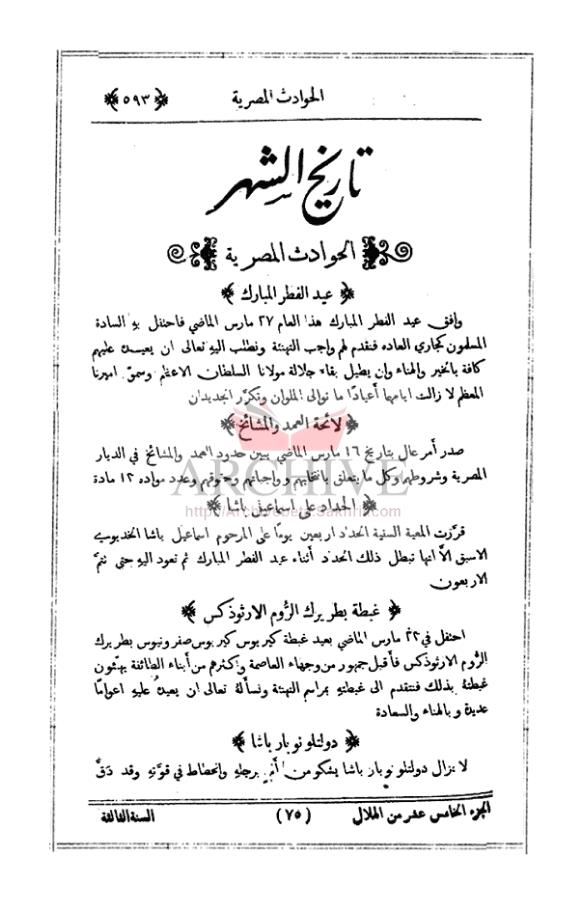 الحوادث المصرية ﴿٥٩٣﴾
تاريخ الشهر
الحوادث المصرية
﴿ عيد الفطر المبارك ﴾
وافق عيد الفطر المبارك هذا العام ٢٧ مارس الماضي فاحتفل به السادة
المسلمون كجاري العاده فنقدم لهم واجب التهنئة ونطلب اليه تعالى ان يعيده عليهم
كافة بالخير والهناء وان يطيل بقاء جلالة مولانا السلطان الاعظم وسمو اميرنا
المعظم لا زالت ايامها أعيادًا ما توالى الملوان وتكرّر الجديدان
﴿ لائحة العمد والمشائخ ﴾
صدر أمر عال بتاريخ ١٦ مارس الماضي يبين حدود العمد والمشائخ في الديار
المصرية وشروطهم وكل ما يتعلق بانتخابهم وواجباتهم وحقوقهم وعدد مواده ١٣ مادة
ARCHIVE
﴿ الحداد على اسماعيل باشا ﴾
قرّرت المعية السنية الحداد اربعين يومًا على المرحوم اسماعيل باشا الخديوي
الاسبق الاّ انها تبطل ذلك الحداد أثناء عيد الفطر المبارك ثم تعود اليه حتى تتمّ
الاربعون
﴿ غبطة بطريرك الرُّوم الارثوذكس ﴾
احتفل في ٢٣ مارس الماضي بعيد غبطة كيريوس كيريوس صفرونيوس بطريرك
الرُّوم الارثوذكس فأقبل جمهور من وجهاء العاصمة واكثرهم من أبناء الطائفة يهنّئون
غبطتهُ بذلك فنتقدم الى غبطتهِ بمراسم التهنئة ونسألهُ تعالى ان يعيدهُ عليهِ اعوامًا
عديدة وبالهناء والسعادة
﴿ دولتلو نوبار باشا ﴾
لا يزال دولتلو نوبار باشا يشكو من برجله وانحطاط في قوّتهِ وقد دقَّ
الجزء الخامس عشر من الهلال (٧٥) السنة الثالثة